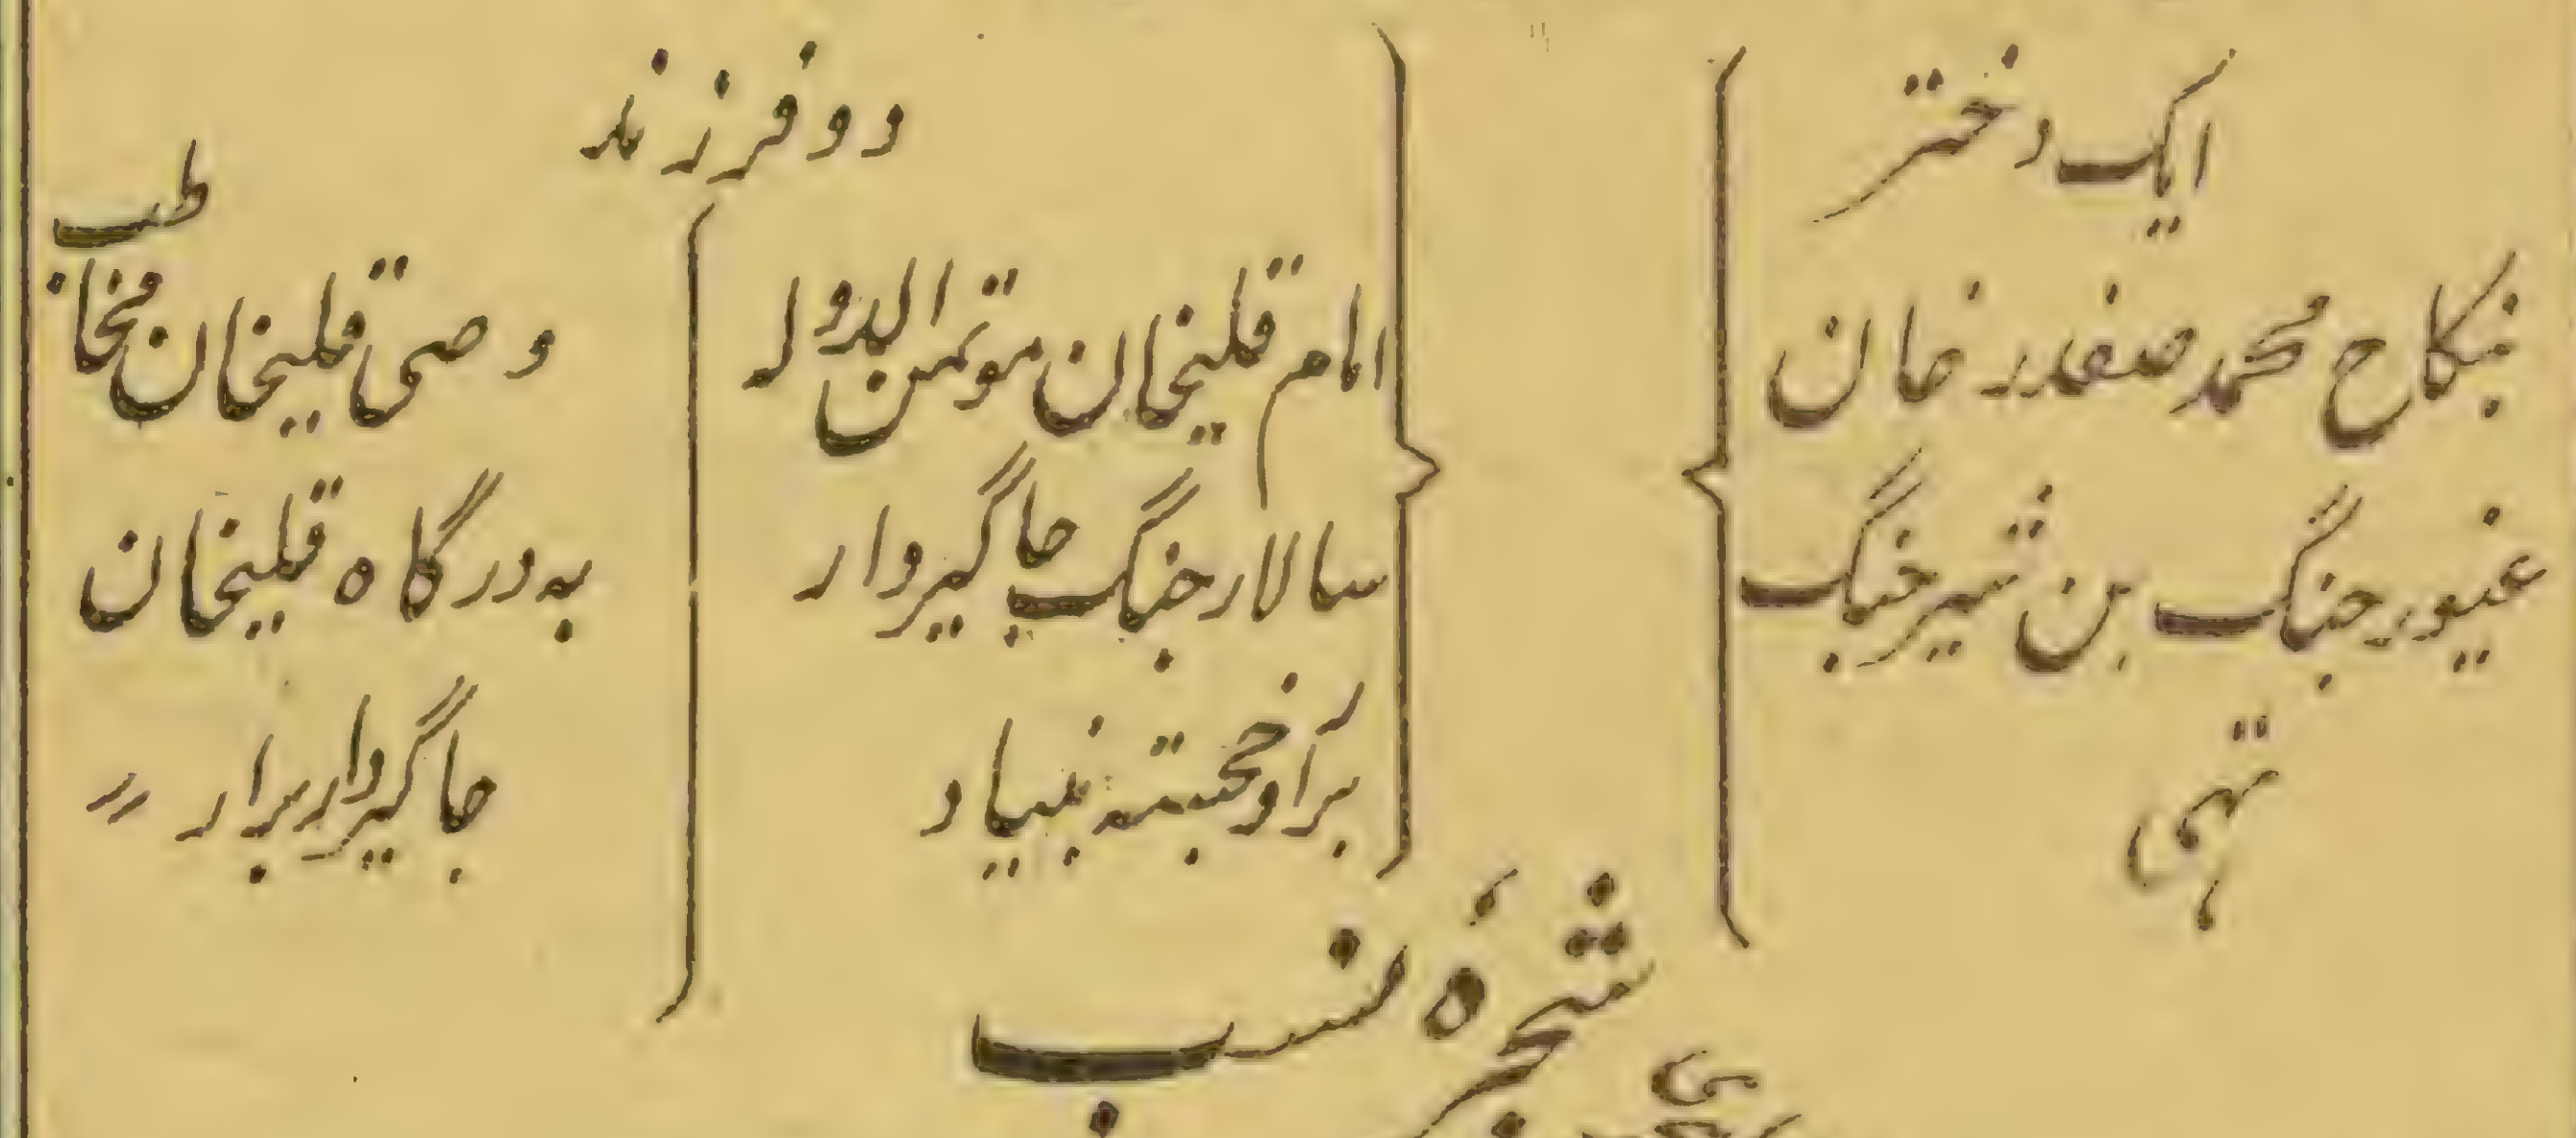 ایک دختر
بنکاح محمد صفدر خان
غیور جنگ بن شیر جنگ
تہی
دو فرزند
امام قلیخان موتمن الدولہ
سالار جنگ جاگیردار
برار و خجستہ بنیاد
وصی قلیخان مخاطب
بہ درگاہ قلیخان
جاگیردار برار رر
شجرۂ نسب